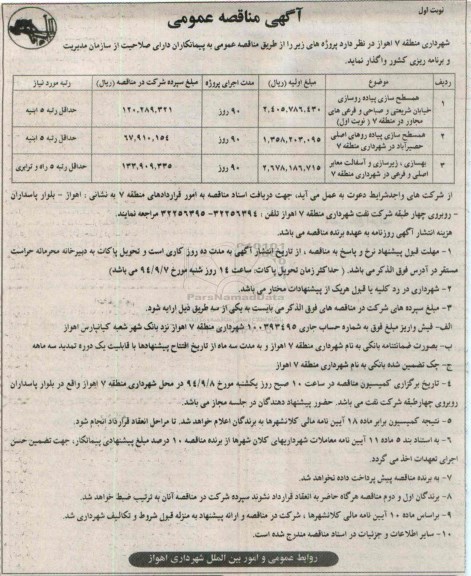 نوبت اول
آگهی مناقصه عمومی
شهرداری منطقه ۷ اهواز در نظر دارد پروژه های زیر را از طریق مناقصه عمومی به پیمانکاران دارای صلاحیت از سازمان مدیریت
و برنامه ریزی کشور واگذار نماید.
ردیف موضوع مبلغ اولیه (ریال) مدت اجرای پروژه مبلغ سپرده شرکت در مناقصه (ریال) رتبه مورد نیاز
۱ همسطح سازی پیاده روسازی خیابان شریعتی و صباحی و فرعی های مجاور در منطقه ۷ (نوبت اول) ۲,۴۰۵,۷۸۶,۴۳۰ ۹۰ روز ۱۲۰,۲۸۹,۳۲۱ حداقل رتبه ۵ ابنیه
۲ همسطح سازی پیاده روهای اصلی حصیرآباد در شهرداری منطقه ۷ ۱,۳۵۸,۲۰۳,۰۹۵ ۹۰ روز ۶۷,۹۱۰,۱۵۴ حداقل رتبه ۵ ابنیه
۳ بهسازی، زیرسازی و آسفالت معابر اصلی و فرعی در شهرداری منطقه ۷ ۲,۶۷۸,۱۸۶,۷۱۵ ۹۰ روز ۱۳۳,۹۰۹,۳۳۵ حداقل رتبه ۵ راه و ترابری
از شرکت های واجدشرایط دعوت به عمل می آید، جهت دریافت اسناد مناقصه به امور قراردادهای منطقه ۷ به نشانی : اهواز - بلوار پاسداران
- روبروی چهار طبقه شرکت نفت شهرداری منطقه ۷ اهواز تلفن : ۳۲۲۵۶۳۹۴ - ۳۲۲۵۶۳۹۵ مراجعه نمایند.
هزینه انتشار آگهی روزنامه به عهده برنده مناقصه می باشد.
۱- مهلت قبول پیشنهاد نرخ و پاسخ به مناقصه ، از تاریخ انتشار آگهی به مدت ده روز کاری است و تحویل پاکات به دبیرخانه محرمانه حراست
مستقر در آدرس فوق الذکر می باشد. ( حداکثر زمان تحویل پاکات: ساعت ۱۴ روز شنبه مورخ ۹۴/۹/۷ می باشد)
۲- شهرداری در رد کلیه یا قبول هریک از پیشنهادات مختار می باشد.
۳- مبلغ سپرده های شرکت در مناقصه های فوق الذکر می بایست به یکی از سه طریق ذیل ارایه شود.
الف- فیش واریز مبلغ فوق به شماره حساب جاری ۱۰۰۳۹۳۴۹۵ شهرداری منطقه ۷ اهواز نزد بانک شهر شعبه کیانپارس اهواز
ب- بصورت ضمانتنامه بانکی به نام شهرداری منطقه ۷ اهواز و به مدت سه ماه از تاریخ افتتاح پیشنهادها با قابلیت یک دوره تمدید سه ماهه
ج- چک تضمین شده بانکی به نام شهرداری منطقه ۷ اهواز
۴- تاریخ برگزاری کمیسیون مناقصه در ساعت ۱۰ صبح روز یکشنبه مورخ ۹۴/۹/۸ در محل شهرداری منطقه ۷ اهواز واقع در بلوار پاسداران
روبروی چهارطبقه شرکت نفت می باشد. حضور پیشنهاد دهندگان در جلسه مجاز می باشد.
۵- نتیجه کمیسیون برابر ماده ۱۸ آیین نامه مالی کلانشهرها به برندگان اعلام خواهد شد. تا مراحل انعقاد قرارداد انجام شود.
۶- به استناد بند ۵ ماده ۱۱ آیین نامه معاملات شهرداریهای کلان شهرها از برنده مناقصه ۱۰ درصد مبلغ پیشنهادی پیمانکار، جهت تضمین حسن
اجرای تعهدات اخذ می گردد.
۷- به برنده مناقصه پیش پرداخت داده نخواهد شد.
۸- برندگان اول و دوم مناقصه هرگاه حاضر به انعقاد قرارداد نشوند سپرده شرکت در مناقصه آنان به ترتیب ضبط خواهد شد.
۹- براساس ماده ۱۰ آیین نامه مالی کلانشهرها ، شرکت در مناقصه و ارائه پیشنهاد به منزله قبول شروط و تکالیف شهرداری شد.
۱۰- سایر اطلاعات و جزئیات در اسناد مناقصه مندرج شده است.
روابط عمومی و امور بین الملل شهرداری اهواز
ParsNamadData